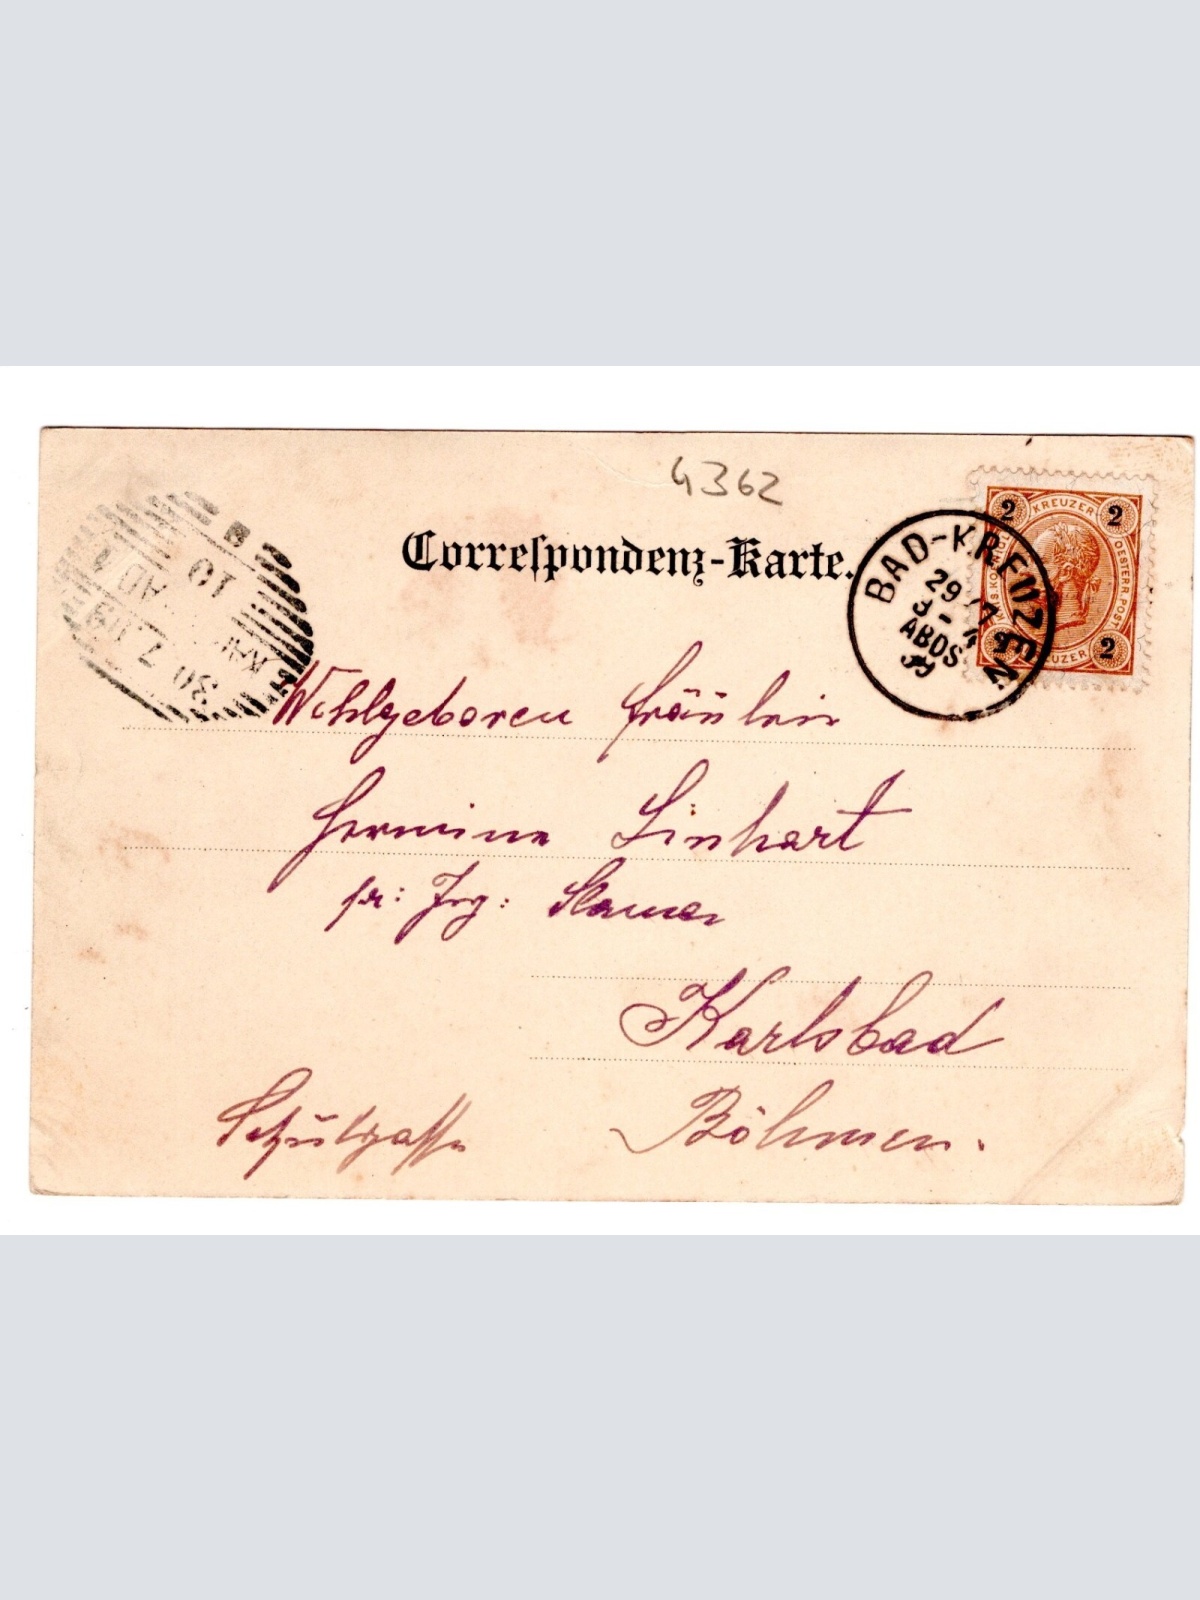 4362
Correspondenz-Karte.
2 KREUZER 2
OESTERR. POST
2
BAD-KREUZEN
29/7
ABDS
99
10
30 7 99
Wohlgeboren Fräulein
Hermine Linhart
Karlsbad
Schulgasse
Böhmen.